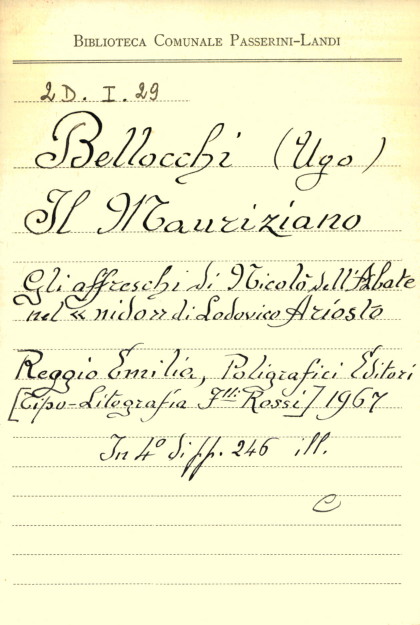 BIBLIOTECA COMUNALE PASSERINI-LANDI
2D. I. 29
Bellocchi (Ugo)
Il Mauriziano
Gli affreschi di Nicolò dell'Abate
nel « nido » di Lodovico Ariosto
Reggio Emilia, Poligrafici Editori
[Tipo-Litografia F.lli Rossi] 1967
In 4º di pp. 246 ill.
C